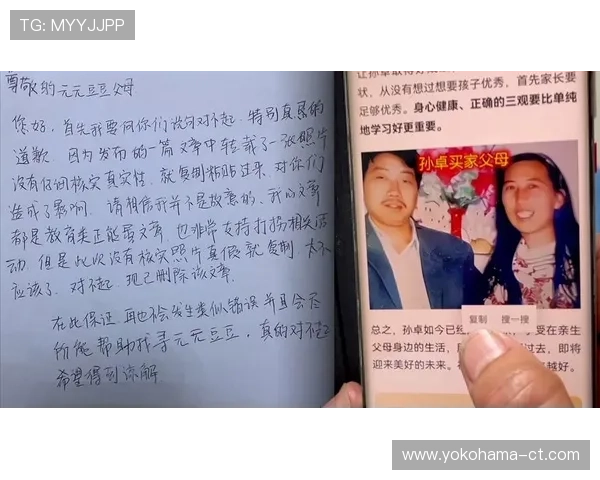 TG: MYYJJPP
尊敬的元元豆豆父母
您好，首先我要向你们说句对不起，特别真恳的
道歉，因为发布的一篇文章中转载了一张照片
没有仔细核实真实性，就复制粘贴过来，对你们
造成了影响，请相信我并不是故意的，我的文章
都是教育类正能量文章，也非常支持打拐相关活
动，但是此次没有核实照片真假就复制，太不
应该了，对不起，现已删除该文章。
在此保证，再也不会发生类似错误并且会尽
所能帮助找寻元元豆豆，真的对不起
希望得到谅解
让孙卓取得好成
状，从没有想过想要孩子优秀，首先家长要
足够优秀。身心健康、正确的三观要比单纯
地学习好更重要。
孙卓买家父母
复制 搜一搜
总之，孙卓如今已经 享受在亲生
父母身边的生活， 过去，即将
迎来美好的未来。 越好。
www.yokohama-ct.com